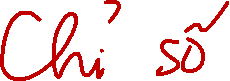 Chỉ số